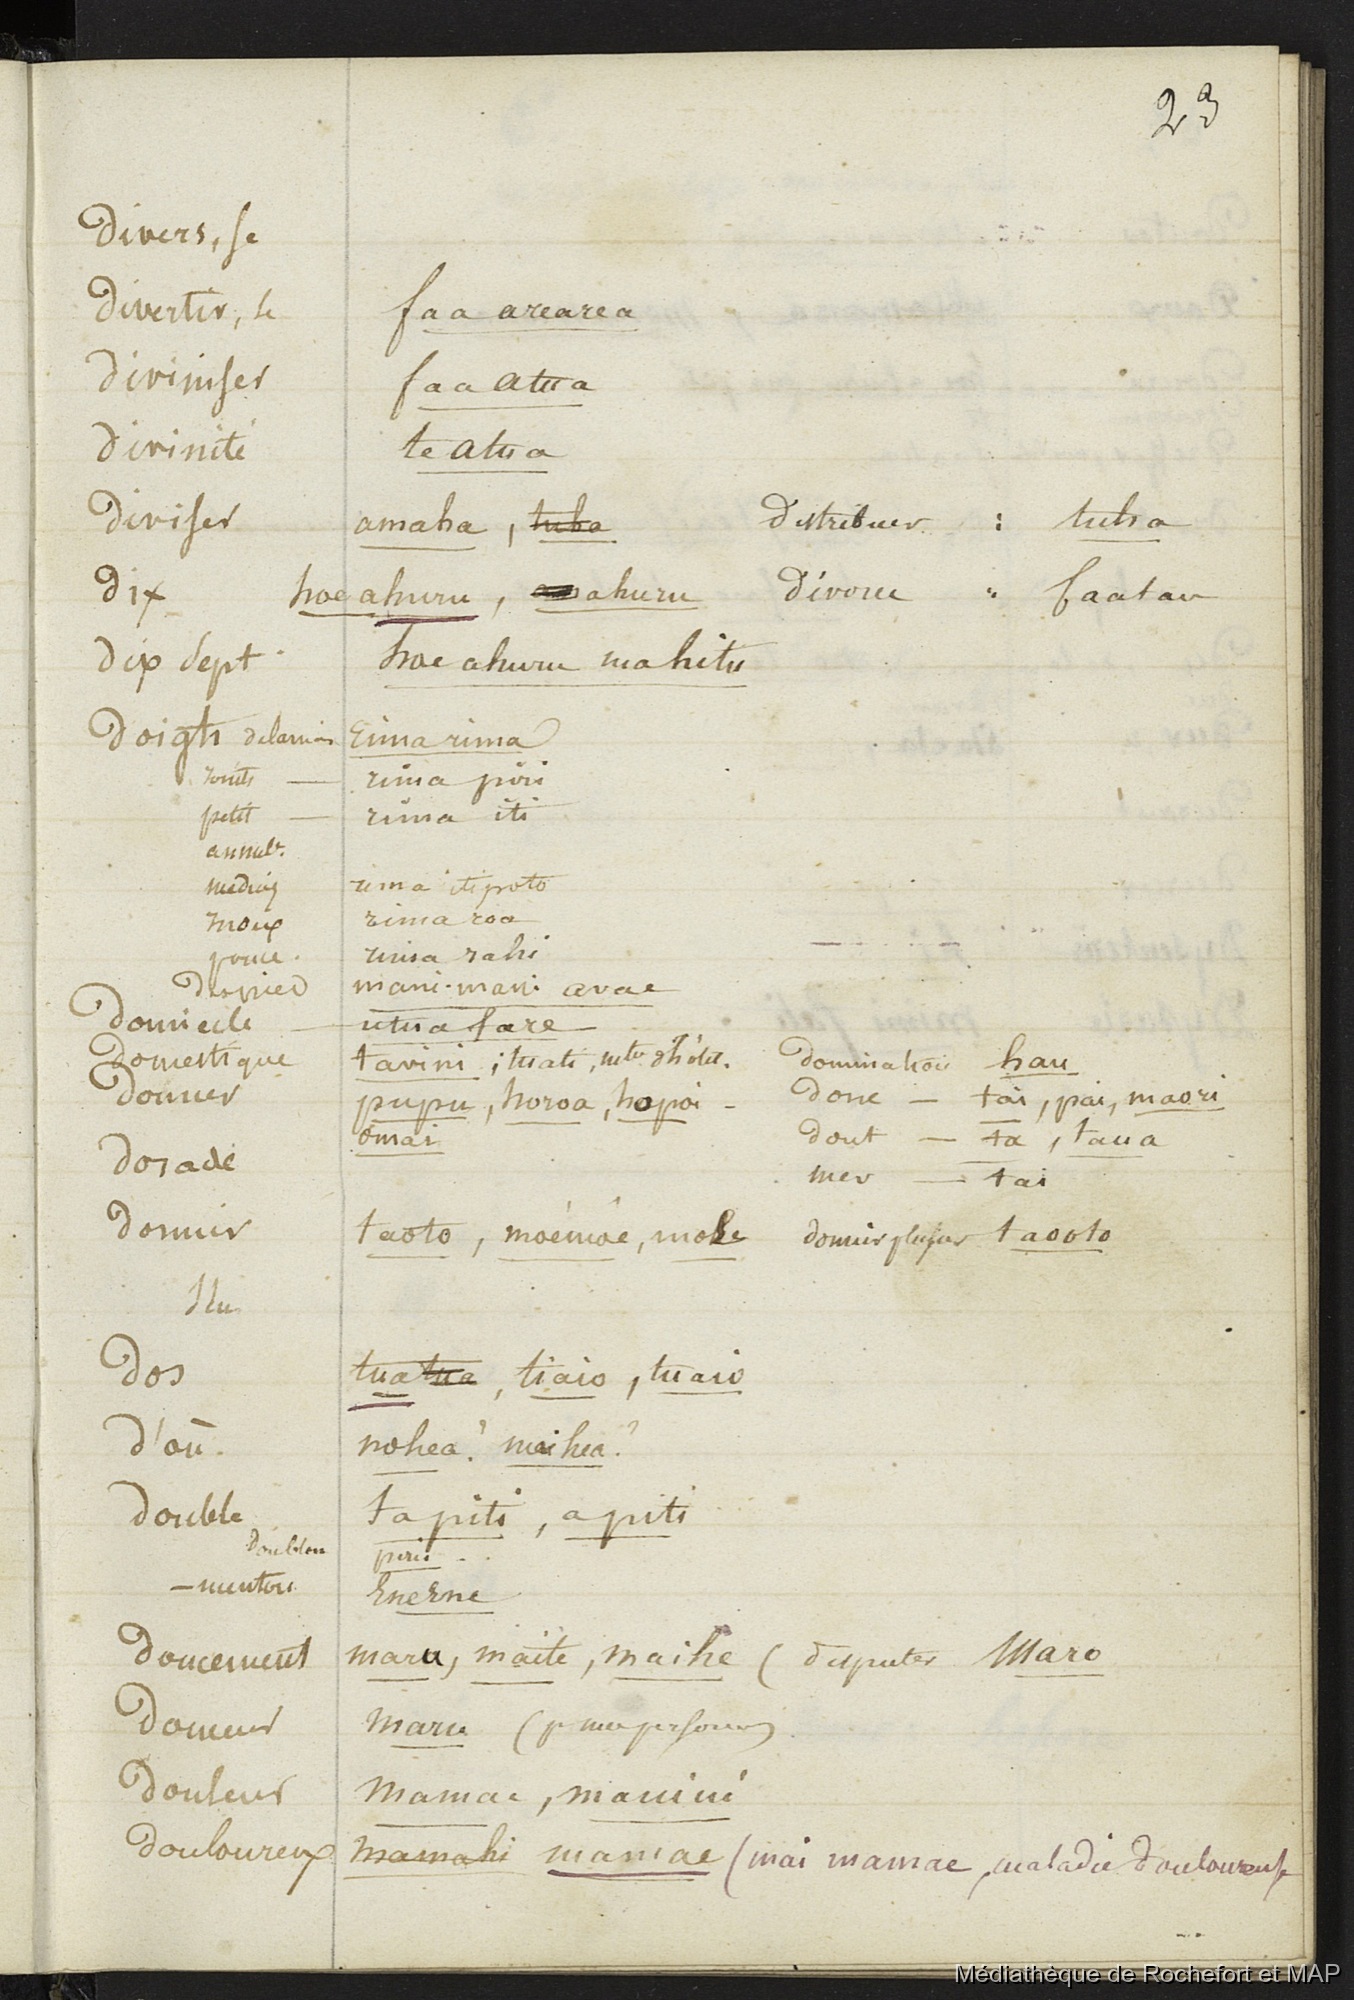 23
Divers, se
Divertir, se faa arearea
Diviniser faa atua
Divinité te atua
Diviser amaha, tuha Distribuer : tuha
Dix hoe ahuru, ahuru Divorce " faatau
Dix sept hoe ahuru mahitu
Doigts de la main rima rima
rima piri
petit — rima iti
annul.
rima iti poto
rima roa
pouce. rima rahi
Du pied mani-mani avae
Domicile — utua fare
Domestique tavini ; tuati, d'hôtel. Domination hau
Donner pupu, horoa, hopoi - Donc — tai, pai, maori
omai dont — ta, taua
Dorade mer — tai
Dormir taoto, moémoé, mohe dormir plusieurs taooto
Dos tuatua, tiaio, tuaio
D'où. nohea? maihea?
Double tapiti, apiti
Doublon piri
— menton
Doucement maru, maite, maihe ( disputer Maro
Douceur maru
Douleur Mamae, mauiui
Douloureux mamahi mamae (mai mamae, maladie douloureuse
Médiathèque de Rochefort et MAP